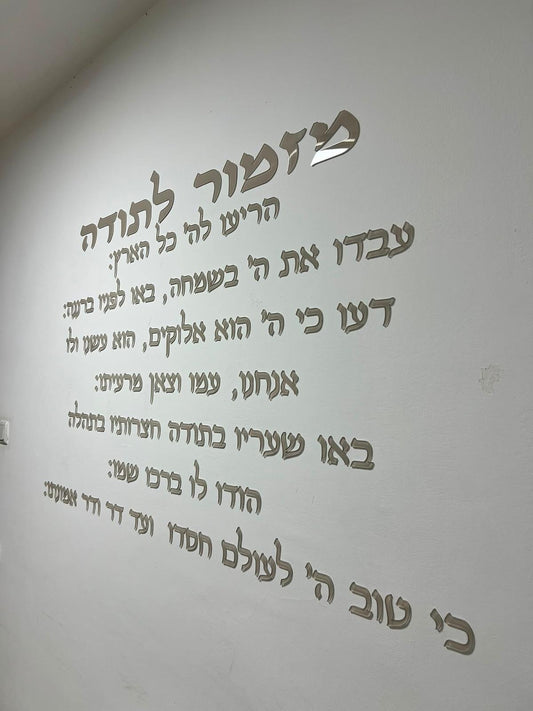 מזמור לתודה
הריעו לה' כל הארץ:
עבדו את ה' בשמחה, באו לפניו ברננה:
דעו כי ה' הוא אלוקים, הוא עשנו ולו
אנחנו, עמו וצאן מרעיתו:
באו שעריו בתודה חצרותיו בתהלה
הודו לו ברכו שמו:
כי טוב ה' לעולם חסדו ועד דר ודר אמונתו: